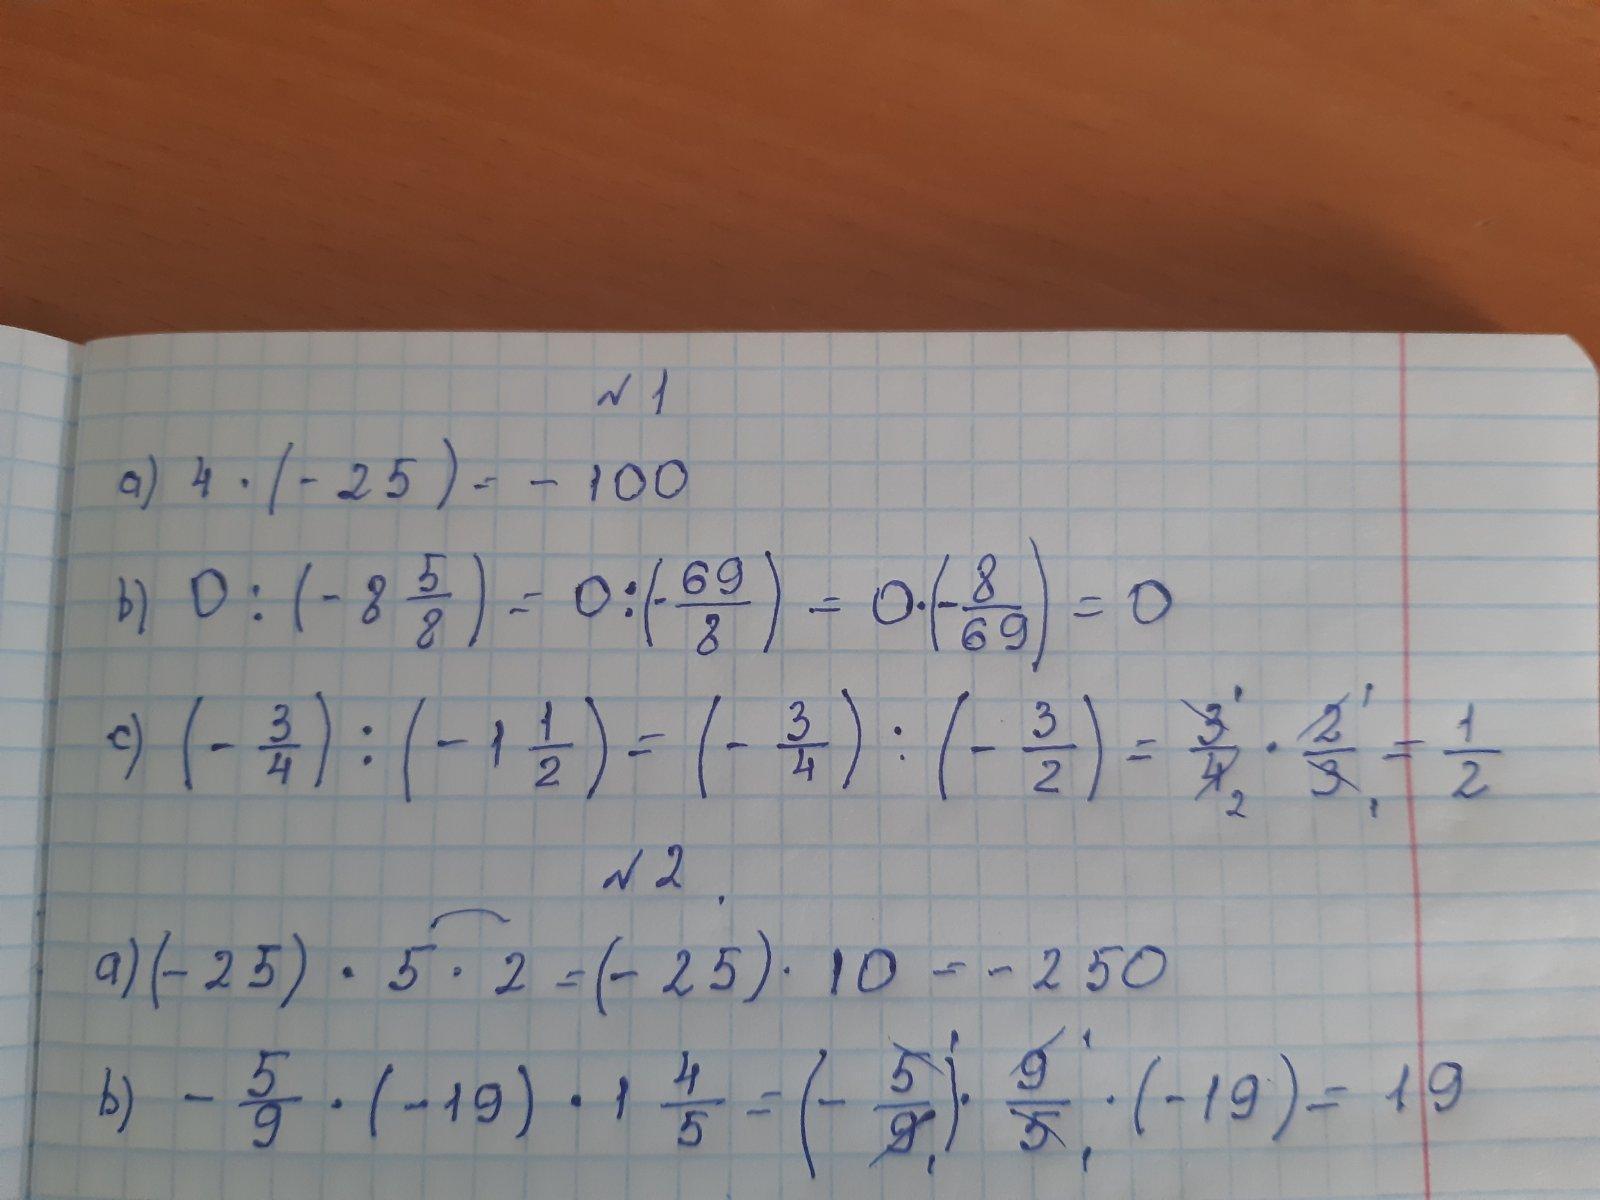 №1
a) 4 · (-25) = -100
b) 0 : (-8 5/8) = 0 : (-69/8) = 0 · (-8/69) = 0
c) (-3/4) : (-1 1/2) = (-3/4) : (-3/2) = 3/4 · 2/3 = 1/2
№2
a) (-25) · 5 · 2 = (-25) · 10 = -250
b) -5/9 · (-19) · 1 4/5 = (-5/9) · 9/5 · (-19) = 19